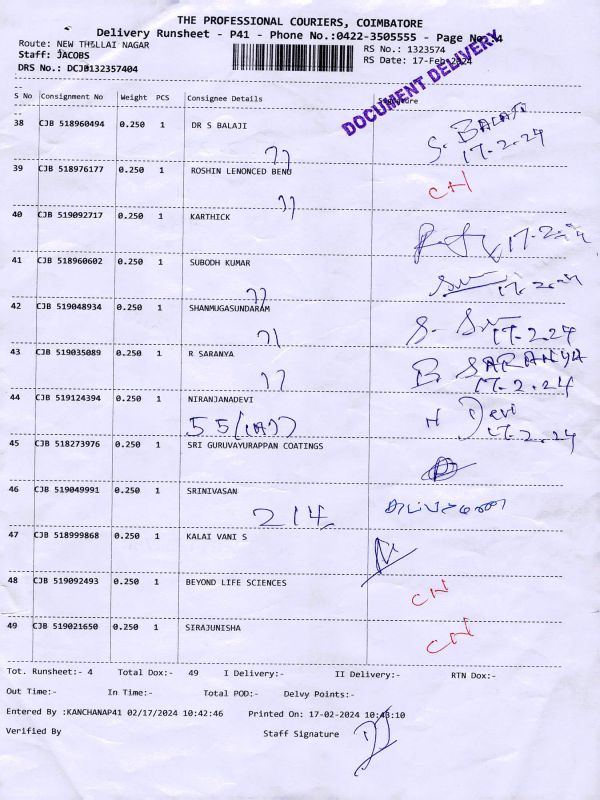 THE PROFESSIONAL COURIERS, COIMBATORE
Delivery Runsheet - P41 - Phone No.:0422-3505555 - Page No.:4
Route: NEW THILLAI NAGAR RS No.: 1323574
Staff: JACOBS RS Date: 17-Feb-2024
DRS No.: DCJB132357404
DOCUMENT DELIVERY
S No Consignment No Weight PCS Consignee Details Signature
38 CJB 518960494 0.250 1 DR S BALAJI S. BALAJI
17-2-24
39 CJB 518976177 0.250 1 ROSHIN LENONCED BENU CN
40 CJB 519092717 0.250 1 KARTHICK 17-2-24
41 CJB 518960602 0.250 1 SUBODH KUMAR 17-2-24
42 CJB 519048934 0.250 1 SHANMUGASUNDARAM 17-2-24
43 CJB 519035089 0.250 1 R SARANYA B. SARANYA
17-2-24
44 CJB 519124394 0.250 1 NIRANJANADEVI N Devi
55 17-2-24
45 CJB 518273976 0.250 1 SRI GURUVAYURAPPAN COATINGS
46 CJB 519049991 0.250 1 SRINIVASAN
214
47 CJB 518999868 0.250 1 KALAI VANI S
48 CJB 519092493 0.250 1 BEYOND LIFE SCIENCES CN
49 CJB 519021650 0.250 1 SIRAJUNISHA CN
Tot. Runsheet:- 4 Total Dox:- 49 I Delivery:- II Delivery:- RTN Dox:-
Out Time:- In Time:- Total POD:- Delvy Points:-
Entered By :KANCHANAP41 02/17/2024 10:42:46 Printed On: 17-02-2024 10:43:10
Verified By Staff Signature